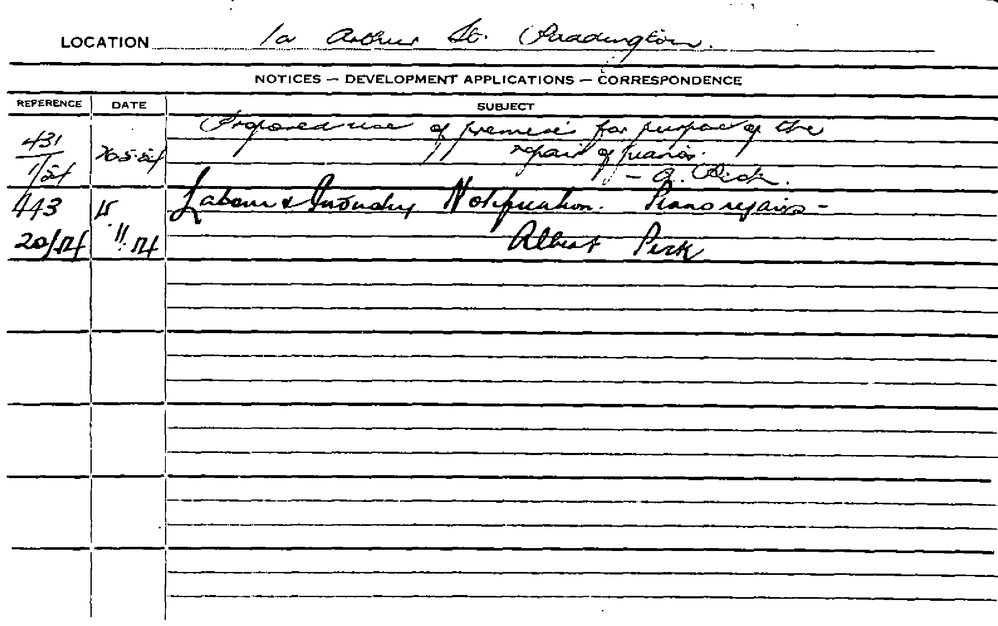 LOCATION 1a Arthur St. Paddington.
NOTICES — DEVELOPMENT APPLICATIONS — CORRESPONDENCE
REFERENCE DATE SUBJECT
431 Proposed use of premises for purpose of the
1/54 26.5.54 repair of pianos.
— A.
443 15 Labour & Industry Notification. Piano repairs —
20/54 11.54 Albert Peck